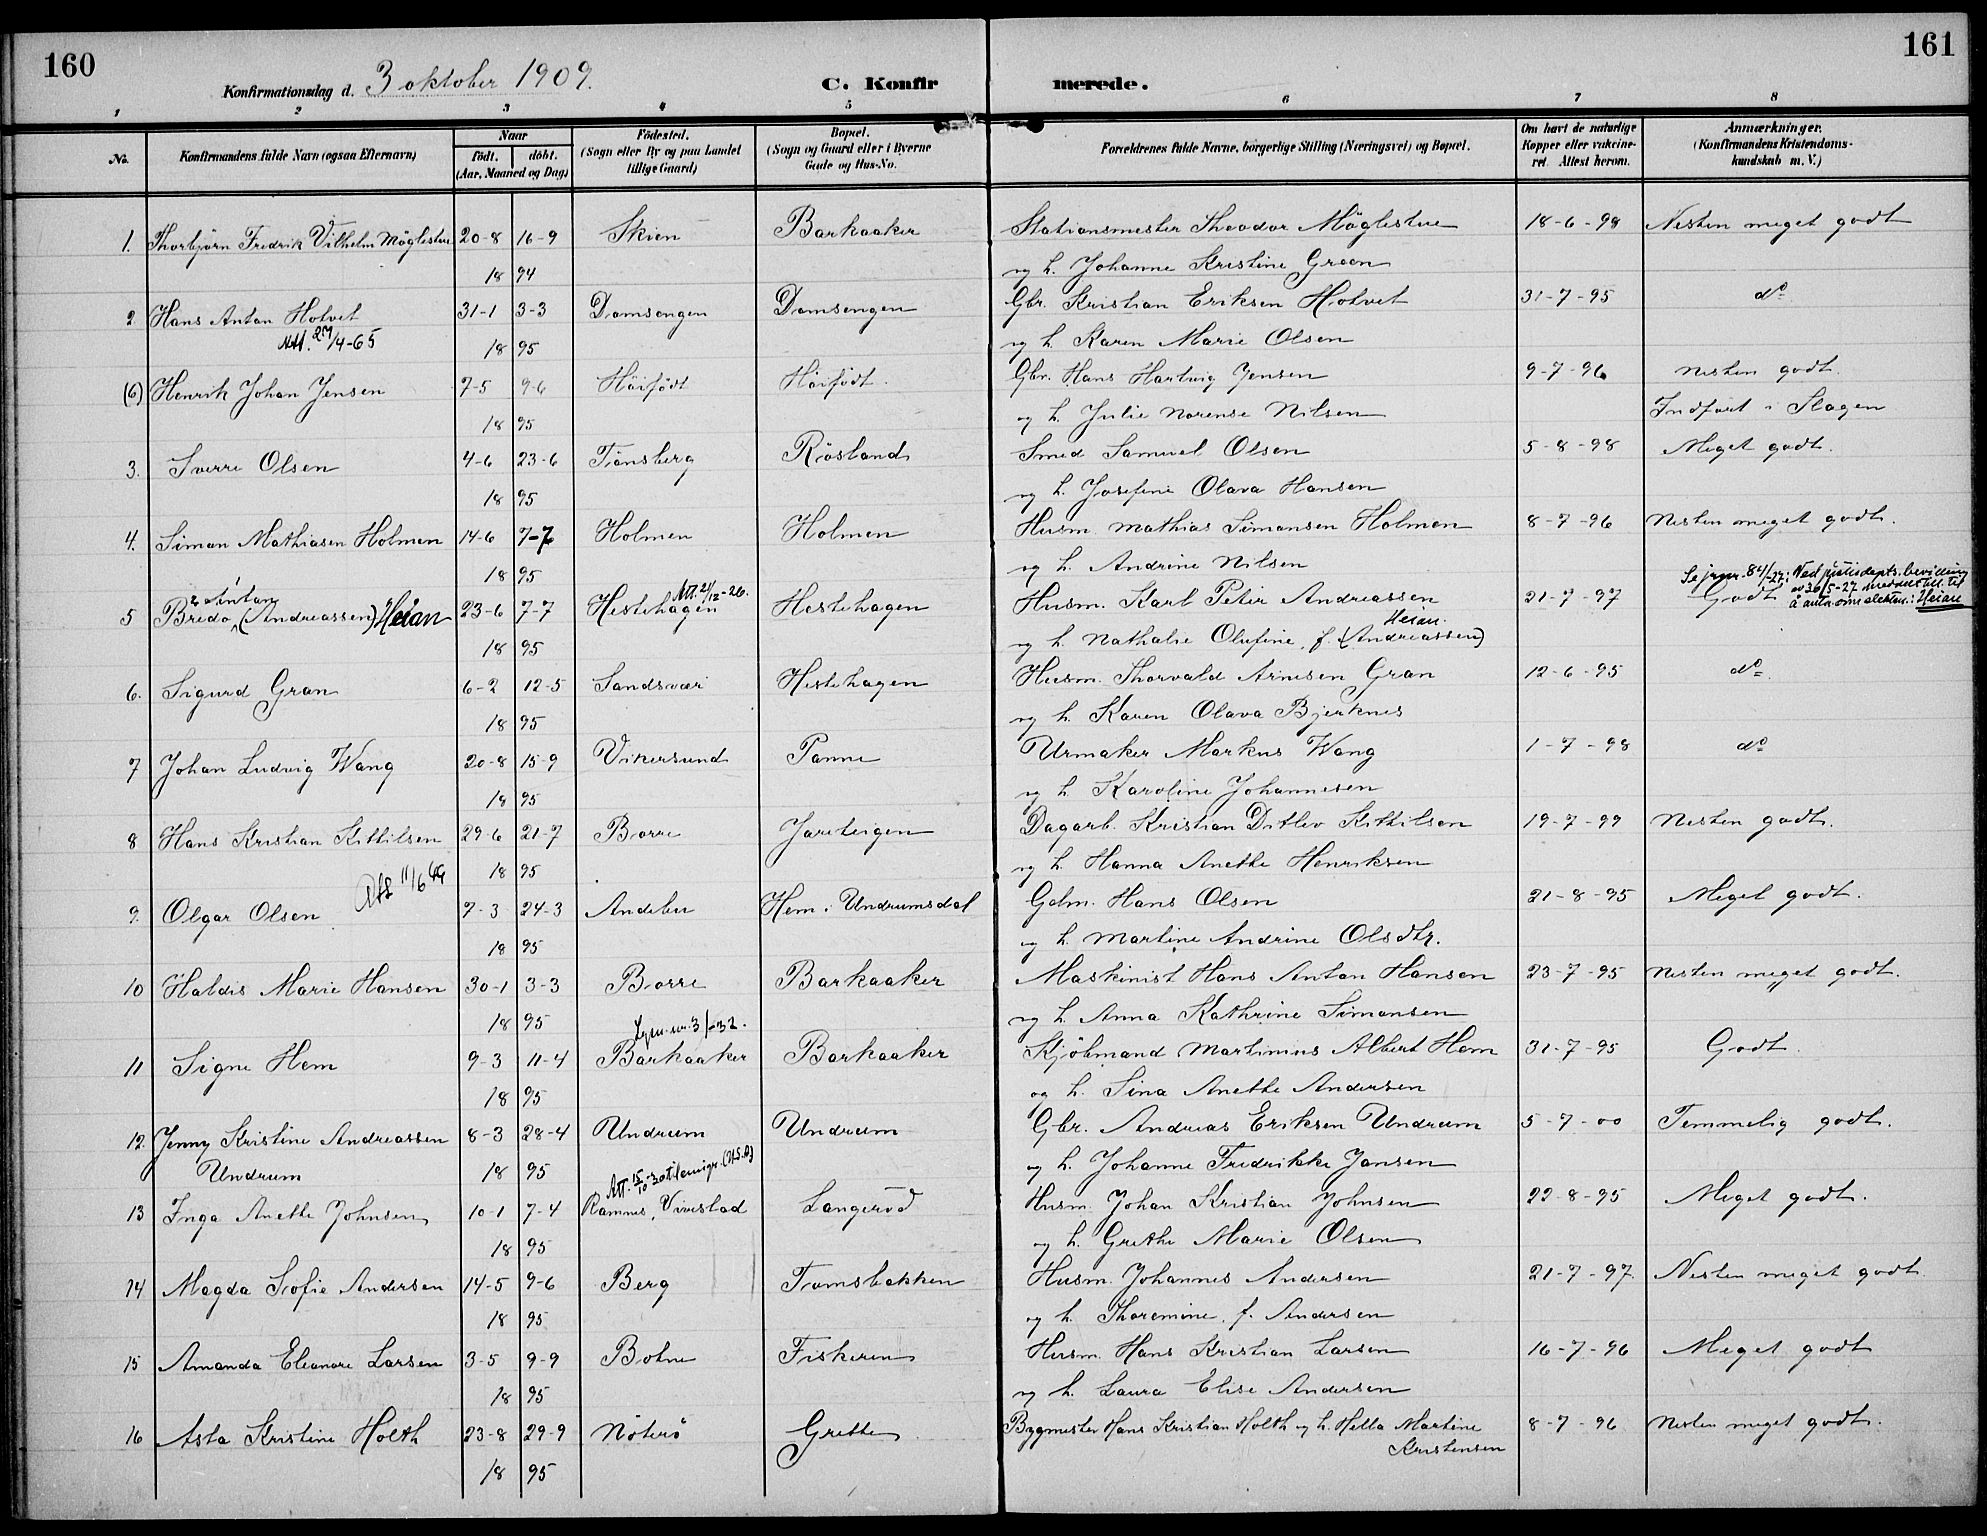 160
161
Konfirmationsdag d. 3 oktober 1909.
C. Konfir
merede.
1 2 3 4 5 6 7 8
No.
Konfirmandens fulde Navn (ogsaa Efternavn)
Naar
født. døbt.
(Aar, Maaned og Dag)
Fødested.
(Sogn eller By og paa Landet
tillige Gaard)
Bopæl.
(Sogn og Gaard eller i Byerne
Gade og Hus-No.
Forældrenes fulde Navne, borgerlige Stilling (Næringsvei) og Bopæl.
Om havt de naturlige
Kopper eller vakcine-
ret. Attest herom.
Anmærkninger.
(Konfirmandens Kristendoms-
kundskab m. V.)
1. Thorbjörn Fredrik Vilhelm Möglestue 20-8 16-9 Skien Barkaaker Stationsmester Theodor Möglestue 18-6-98 Nesten meget godt
18 94 og h. Johanne Kristine Green
2 Hans Anton Hotvet 31-1 3-3 Domsengen Domsengen Gbr. Kristian Eriksen Hotvet 31-7-95 do
Att. 27/4-65 18 95 og h. Karen Marie Olsen
(6) Henrik Johan Jensen 7-5 9-6 Höifödt Höifödt. Gbr. Hans Hartvig Jensen 9-7-96 Nesten godt.
18 95 og h. Julie Norense Nilsen Indfört i Slagen
3. Sverre Olsen 4-6 23-6 Tönsberg Rösland Smed Samuel Olsen 5-8-98 Meget godt.
18 95 og h. Josefine Olava Hansen
4. Simon Mathiasen Holmen 14-6 7-7 Holmen Holmen Husm. Mathias Simonsen Holmen 8-7-96 Nesten meget godt.
18 95 og h. Andrine Nilsen
Anton
Att. 2/12-26.
Se jrnr. 84/-27: Ved justisdepts. bevilling
av 30/5-27 meddelt till. til
å anta som slektsn.: Heian
5 Bredo (Andreassen) Heian 23-6 7-7 Hestehagen Hestehagen Husm. Karl Peter Andreassen 21-7-97 Godt
Heian.
18 95 og h. Nathalie Olufine, f. (Andreassen)
6. Sigurd Gran 6-2 12-5 Sandsvær Hestehagen Husm. Thorvald Arnesen Gran 12-6-95 do.
18 95 og h. Karen Olava Bjerknes
7 Johan Ludvig Wang 20-8 15-9 Vikersund Panne Urmaker Markus Wang 1-7-98 do
18 95 og h. Karoline Johannesen
8 Hans Kristian Kittilsen 29-6 21-7 Borre Jareteigen Dagarb. Kristian Ditlev Kittilsen 19-7-99 Nesten godt.
Att 11/6 49 18 95 og h. Hanna Anette Henriksen
9. Olgar Olsen 7-3 24-3 Andebu Hem i Undrumsdal Gdm. Hans Olsen 21-8-95 Meget godt.
18 95 og h. Martine Andrine Olsdtr.
10 Haldis Marie Hansen 30-1 3-3 Borre Barkaaker Maskinist Hans Anton Hansen 23-7-95 Nesten meget godt.
18 95 og h. Anna Kathrine Simonsen
nr. 3/-32.
11 Signe Hem 9-3 11-4 Barkaaker Barkaaker Kjöbmand Martinius Albert Hem 31-7-95 Godt.
18 95 og h. Sina Anette Andersen
12. Jenny Kristine Andreassen 8-3 28-4 Undrum Undrum Gbr. Andreas Eriksen Undrum 5-7-00 Temmelig godt.
Undrum 18 95 og h. Johanne Fredrikke Jansen
Att. 15/10-30 til emigr. (U.S.A)
13 Inga Anette Johnsen 10-1 7-4 Ramnes, Vivestad Langeröd Husm. Johan Kristian Johnsen 22-8-95 Meget godt.
18 95 og h. Grethe Marie Olsen
14 Magda Sofie Andersen 14-5 9-6 Berg Tomsbakken Husm. Johannes Andersen 21-7-97. Nesten meget godt
18 95 og h. Thoremine, f. Andersen
15 Amanda Eleonore Larsen 3-5 9-9 Botne Fiskeren Husm. Hans Kristian Larsen 16-7-96 Meget godt
18 95 og h. Laura Elise Andersen
16 Asta Kristine Holth 23-8 29-9 Nöterö Grette Bygmester Hans Kristian Holth og h. Hella Martine 8-7-96 Nesten meget godt.
Kristensen
18 95